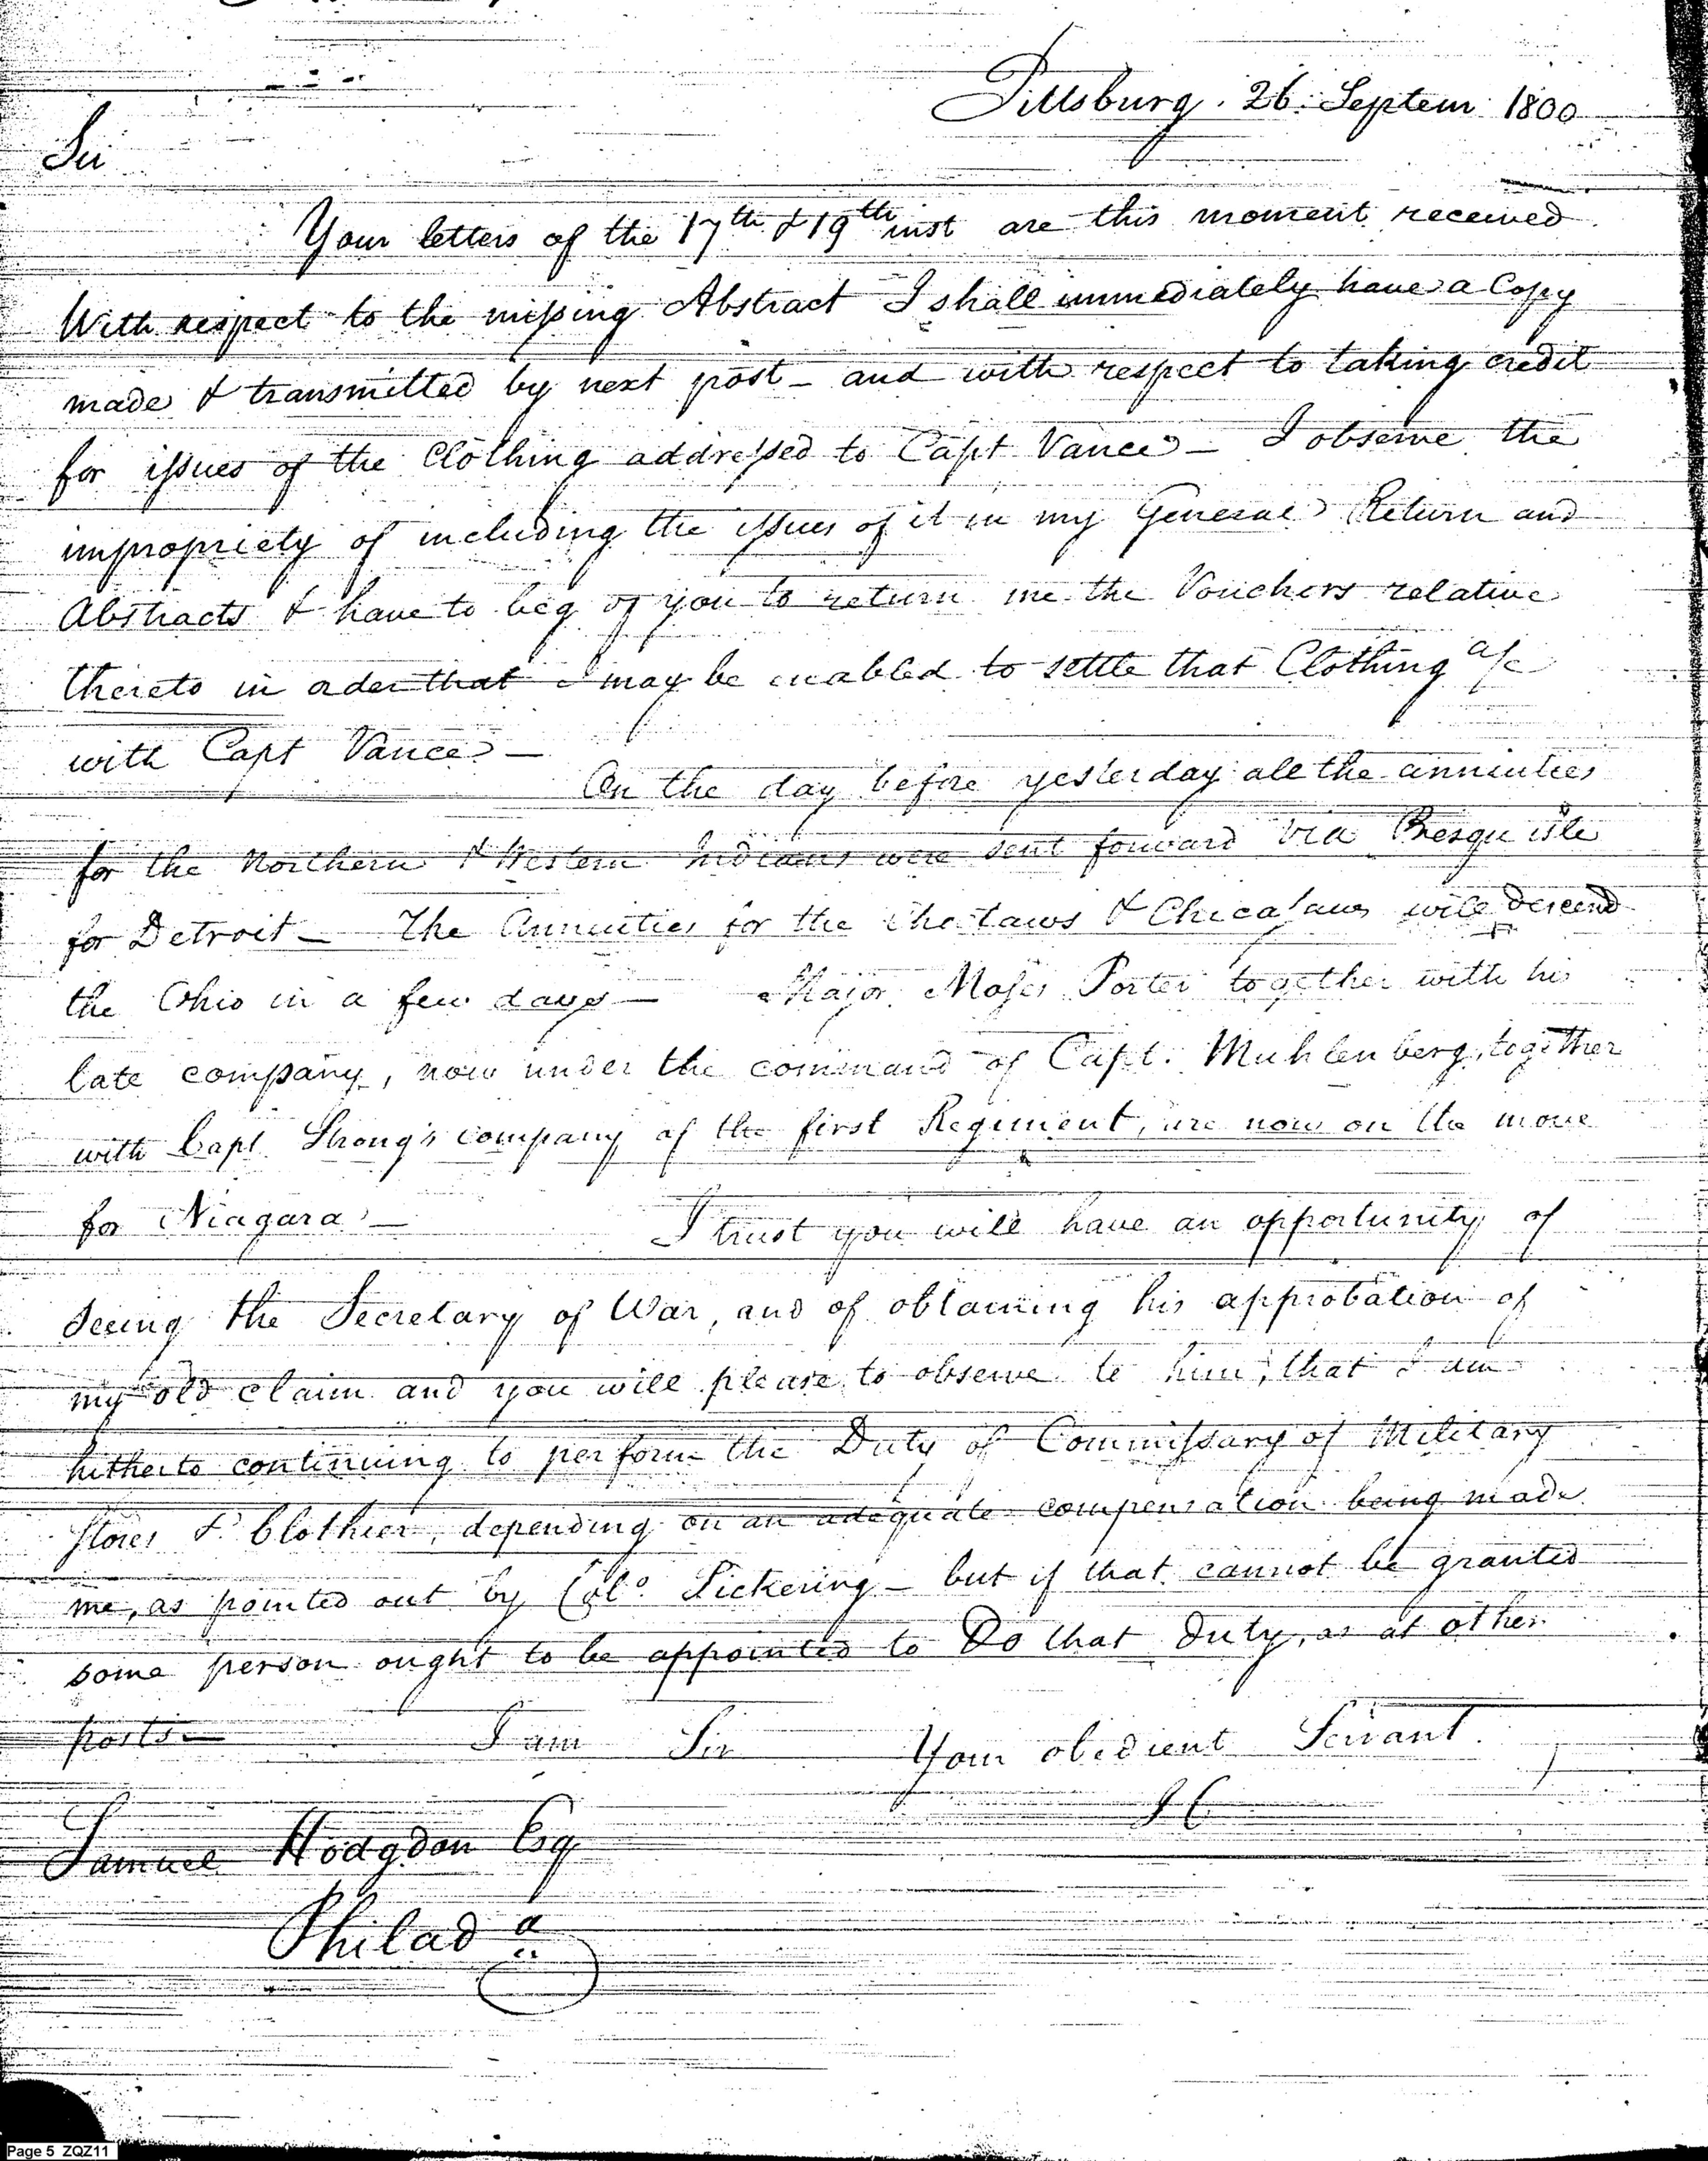 Pittsburg. 26. Septem 1800
Sir
Your letters of the 17th & 19th inst are this moment received
With respect to the missing Abstract I shall immediately have a Copy
made & transmitted by next post — and with respect to taking credit
for issues of the Clothing addressed to Capt Vance — I observe the
impropriety of including the issues of it in my General Return and
Abstracts & have to beg of you to return me the Vouchers relative
thereto in order that I may be enabled to settle that Clothing a/c
with Capt Vance —
On the day before yesterday all the annuities
for the Northern & Western Indians were sent forward via Presqu isle
for Detroit — The Annuities for the Choctaws & Chicasaws will descend
the Ohio in a few days — Major Moses Porter together with his
late company, now under the command of Capt. Muhlenberg, together
with Capt Strong's company of the first Regiment, are now on the move
for Niagara —
I trust you will have an opportunity of
seeing the Secretary of War, and of obtaining his approbation of
my old claim and you will please to observe to him, that I am
hitherto continuing to perform the Duty of Commissary of Military
Stores & Clothier, depending on an adequate compensation being made
me, as pointed out by Colo. Pickering — but if that cannot be granted
some person ought to be appointed to Do that Duty, as at other
posts —
I am Sir Your obedient Servant
I C
Samuel Hodgdon Esq
Philada
Page 5 ZQZ11